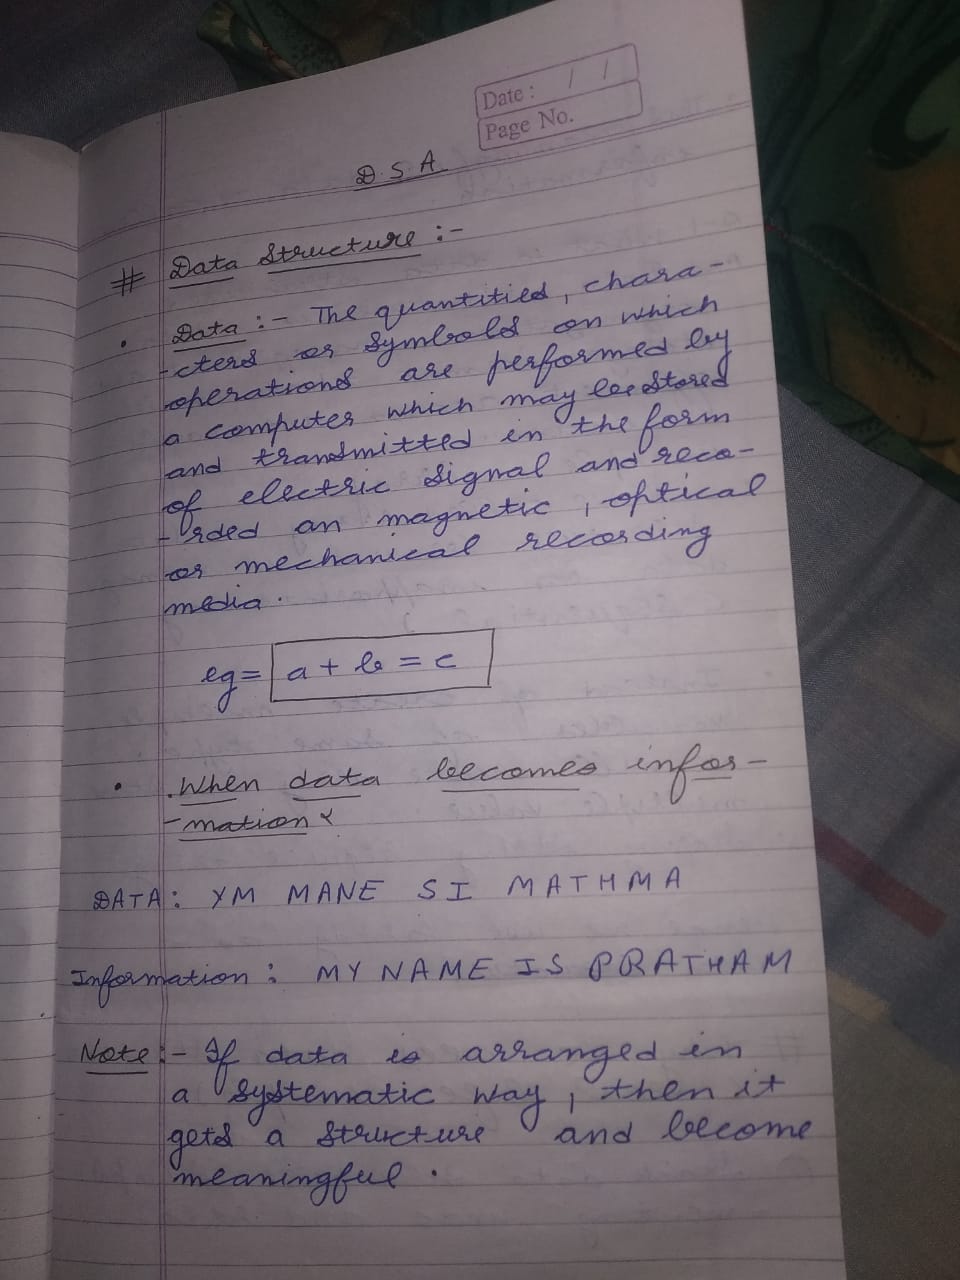 Date : / /
Page No.
D.S.A
# Data Structure :-
• Data :- The quantities, chara-
-cters or symbols on which
operations are performed by
a computer which may be stored
and transmitted in the form
of electric signal and reco-
-rded an magnetic, optical
or mechanical recording
media.
eg= a + b = c
• .When data becomes infor-
-mation
DATA: YM MANE SI MATHMA
Information: MY NAME IS PRATHAM
Note :- If data is arranged in
a systematic way, then it
gets a structure and become
meaningful.